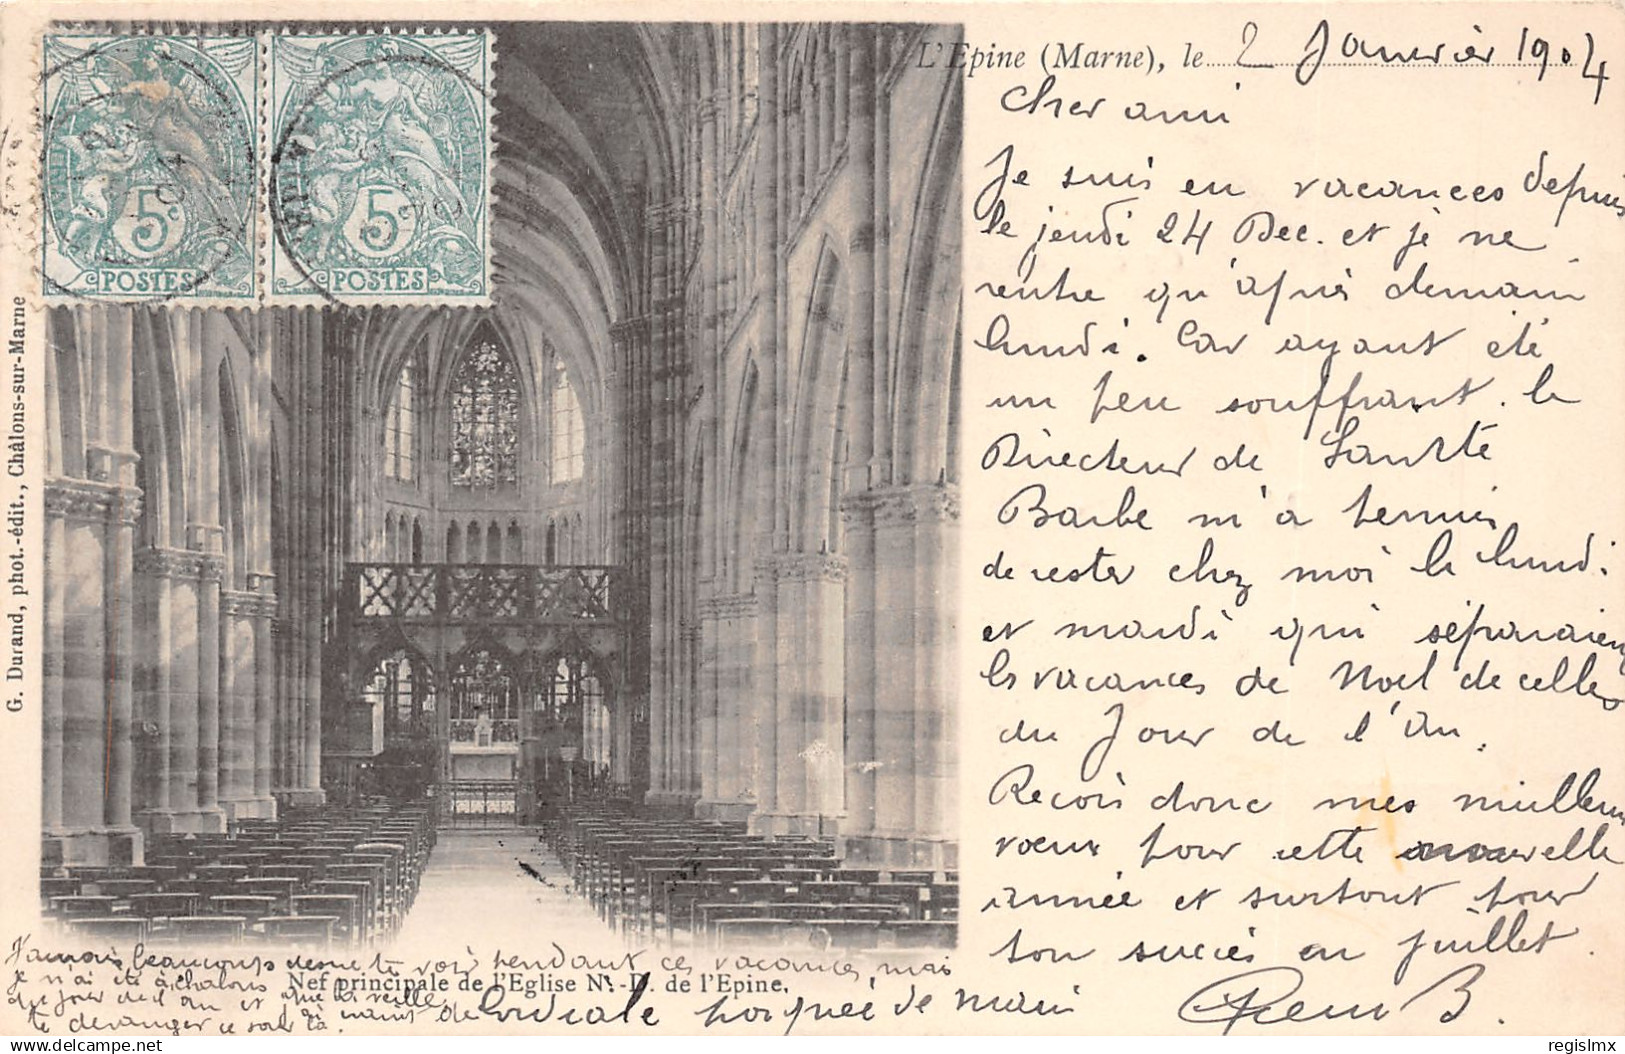 L'Epine (Marne), le 2 Janvier 1904
Cher ami
Je suis en vacances depuis
le jeudi 24 Dec. et je ne
rentre qu'après demain
lundi. Car ayant été
un peu souffrant. le
Directeur de Sainte
Barbe m'a permis
de rester chez moi le lundi
et mardi qui séparaient
les vacances de Noel de celles
du Jour de l'An.
Reçois donc mes meilleurs
vœux pour cette nouvelle
année et surtout pour
ton succès en juillet.
J'aurais beaucoup désiré te voir pendant ces vacances, mais
je n'ai été à chalons
que la veille
du jour de l'an et
j'ai craint de
te deranger ce soir là.
Cordiale poignée de main
B.
Nef principale de l'Eglise N.-D. de l'Epine.
G. Durand, phot.-édit., Châlons-sur-Marne
5c
POSTES
5c
POSTES
MARNE
regislmx
delcampe.net